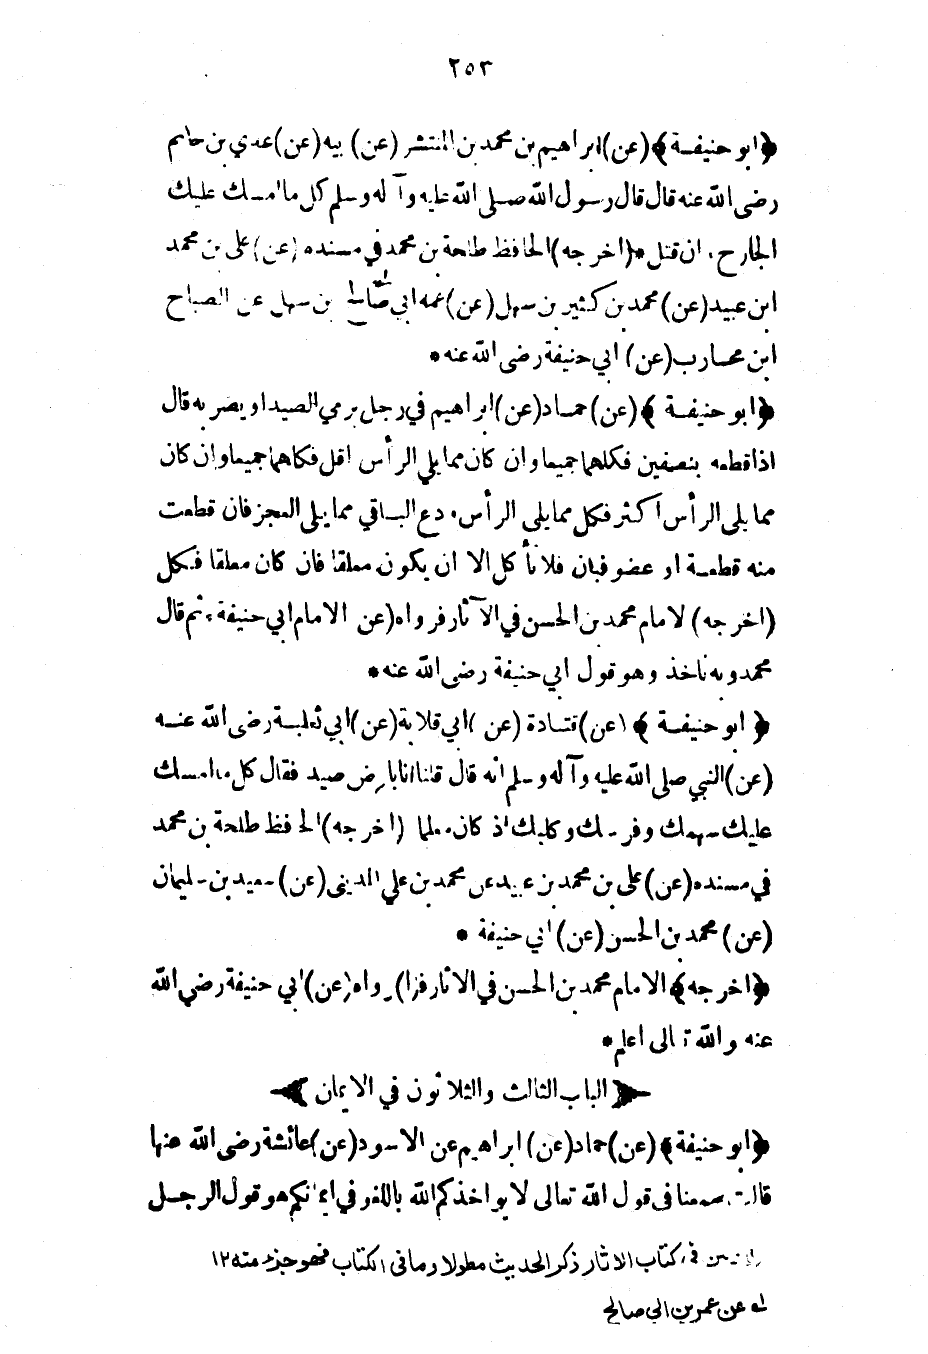 ٢٥٣
﴿ابو حنيفة﴾ (عن) ابراهيم بن محمد بن المنتشر (عن) بيه (عن) عدي بن حاتم
رضى الله عنه قال قال رسول الله صلى الله عليه وآله وسلم كل ما امسك عليك
الجارح، ان قتل * (اخرجه) الحافظ طلحة بن محمد في مسنده (عن) على بن محمد
ابن عبيد (عن) محمد بن كثير بن سهل (عن) عمه ابي صالح بن سهل عن الصباح
ابن محارب (عن) ابي حنيفة رضى الله عنه *
﴿ابو حنيفة﴾ (عن) حماد (عن) ابراهيم في رجل يرمي الصيد او يضربه قال
اذا قطعه بنصفين فكلهما جميعا وان كان مما يلي الرأس اقل فكلهما جميعا وان كان
مما يلى الرأس اكثر فكل مما يلى الرأس، دع الباقي مما يلى العجز فان قطعت
منه قطعة او عضو فبان فلا تأكل الا ان يكون معلقا فان كان معلقا فكل
(اخرجه) لامام محمد بن الحسن في الآثار فرواه (عن الامام ابي حنيفة، ثم قال
محمد وبه ناخذ وهو قول ابي حنيفة رضى الله عنه *
﴿ابو حنيفة﴾ (عن) قتادة (عن) ابي قلابة (عن) ابي ثعلبة رضى الله عنه
(عن) النبي صلى الله عليه وآله وسلم انه قال قلنا انا بارض صيد فقال كل ما امسك
عليك سهمك وفرسك وكلبك اذ كان معلما (اخرجه) الحافظ طلحة بن محمد
في مسنده (عن) على بن محمد بن عبيد عن محمد بن علي المديني (عن) سعيد بن سليمان
(عن) محمد بن الحسن (عن) ابي حنيفة *
﴿اخرجه﴾ الامام محمد بن الحسن في الاثار فرواه (عن) ابي حنيفة رضي الله
عنه والله تعالى اعلم *
﴿الباب الثالث والثلاثون في الايمان﴾
﴿ابو حنيفة﴾ (عن) حماد (عن) ابراهيم عن الاسود (عن) عائشة رضى الله عنها
قالت سمعنا فى قول الله تعالى لا يواخذكم الله باللغو في ايمانكم هو قول الرجل
في كتاب الاثار ذكر الحديث مطولا وما فى الكتاب فهو جزء منه ١٢
له عن عمر بن ابي صالح